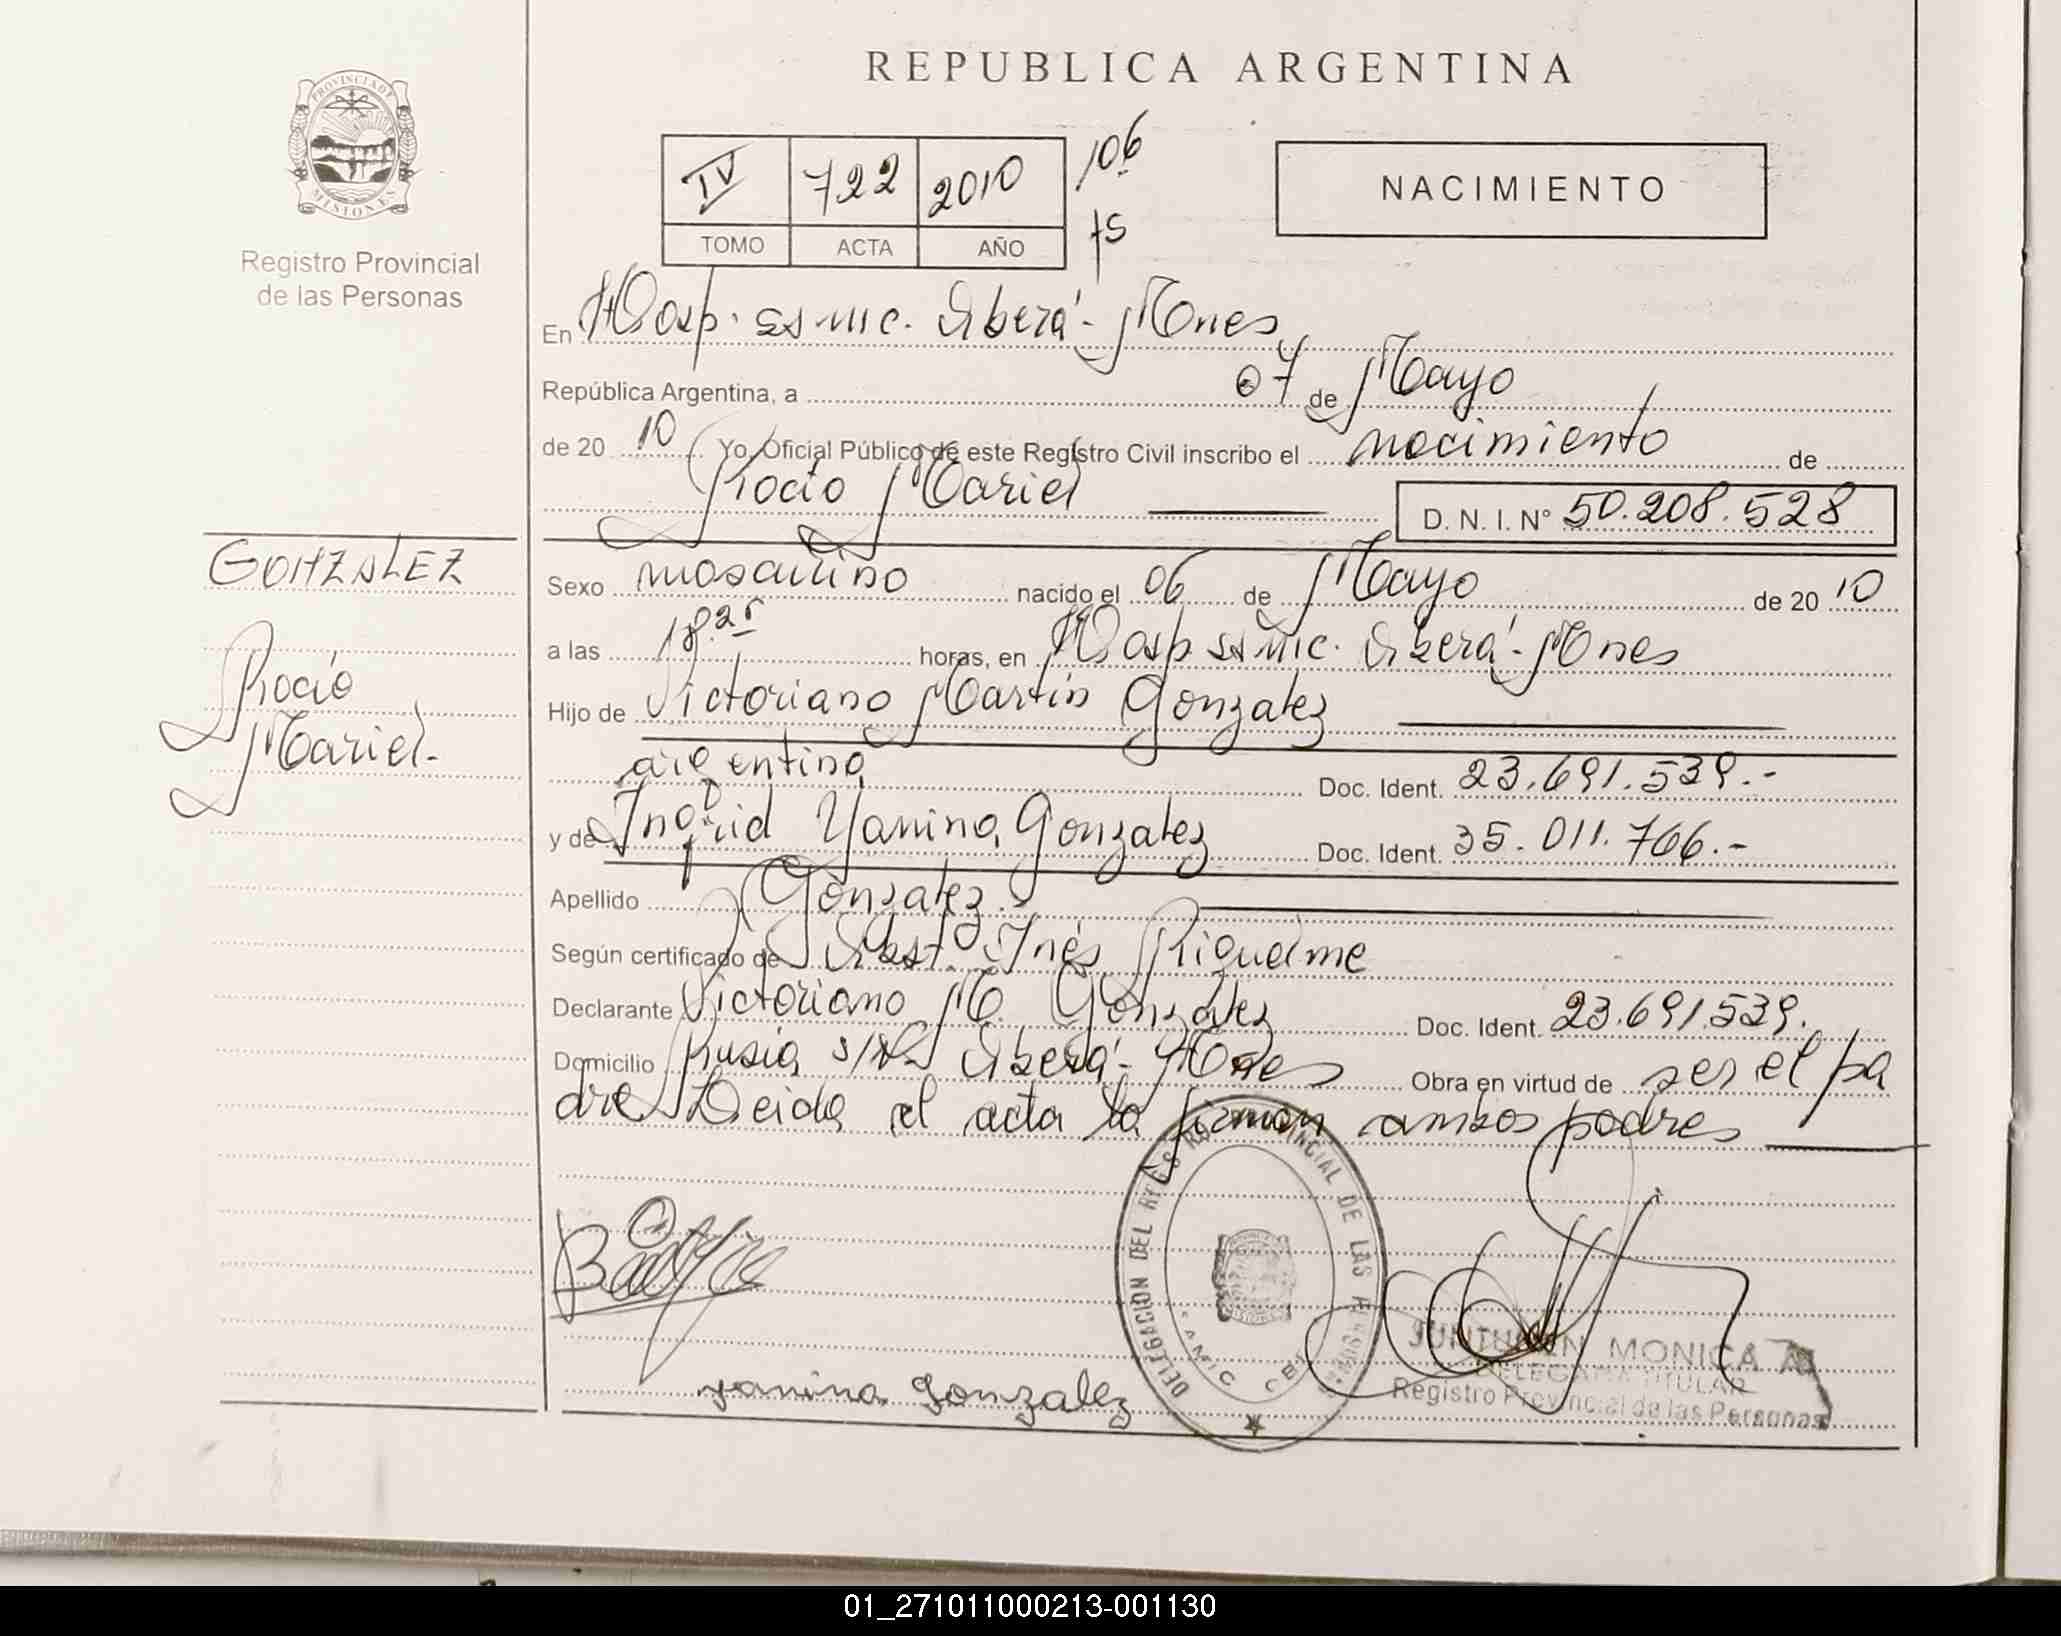 REPUBLICA ARGENTINA
PROVINCIA DE
MISIONES
Registro Provincial
de las Personas
IV 722 2010 106
TOMO ACTA AÑO
NACIMIENTO
En Hosp. SSMIC. Oberá - Mnes,
República Argentina, a 07 de Mayo
de 2010 Yo, Oficial Público de este Registro Civil inscribo el nacimiento de
Rocío Mariel D. N. I. N° 50.208.528
GONZALEZ
Rocío
Mariel.-
Sexo nacido el 06 de Mayo de 2010
a las 18.25 horas, en Hosp SSMIC. Oberá - Mnes
Hijo de Victoriano Martín Gonzalez
argentino Doc. Ident. 23.691.539.-
y de Ingrid Yanina Gonzalez Doc. Ident. 35.011.766.-
Apellido Gonzalez.
Según certificado de Obst. Inés Riquelme
Declarante Victoriano M. Gonzalez Doc. Ident. 23.691.539.
Domicilio Rusia s/n Oberá - Mnes Obra en virtud de ser el pa
dre Leida el acta la firman ambos padres
DELEGACION DEL REGISTRO PROVINCIAL DE LAS PERSONAS
yanina gonzalez
MONICA
DELEGADA TITULAR
Registro Provincial de las Personas
01_271011000213-001130